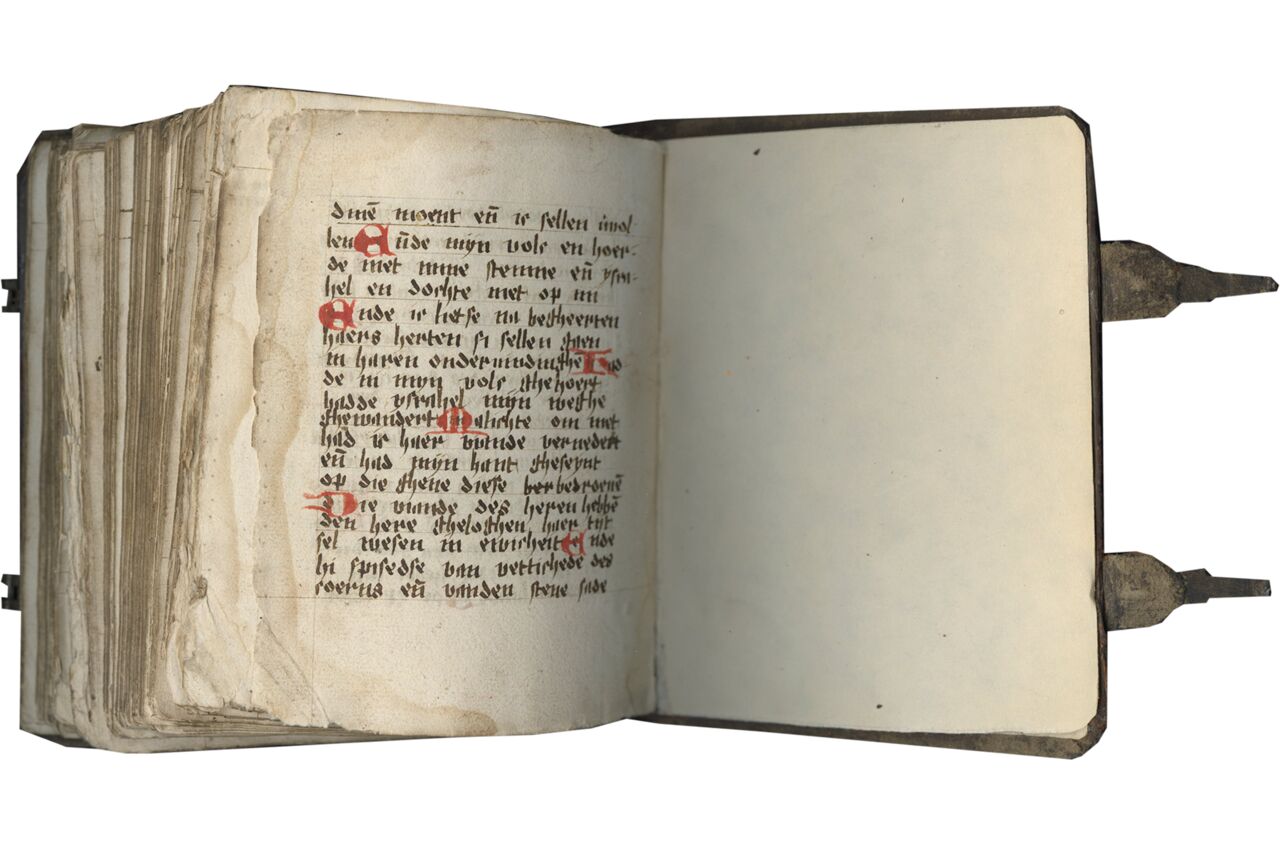 dinē moent en̄ ic sellen invol
len Ende mijn volc en hoer-
de niet mine stemme en̄ ysra-
hel en dochte niet op mi
Ende ic lietse na begheerten
haers herten si sellen gaen
in haren ondervindinghe Had
de in mijn volc ghehoert
hadde ysrahel mijn weghe
ghewandert Malichte om niet
had ic haer viande vernedert
en̄ had mijn hant gheseynt
op die ghene diese verbedroevē
Die viande des heren hebbē
den here gheloghen haer tijt
sel wesen in ewicheit Ende
hi spisedse van vettichede des
coerns en̄ vanden stene sade